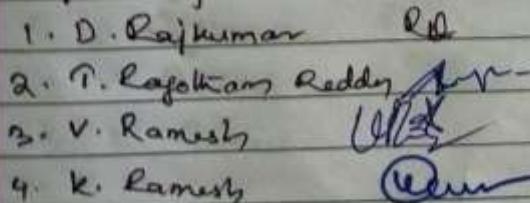 1. D. Rajkumar
2. T. Ragotham Reddy
3. V. Ramesh
4. K. Ramesh